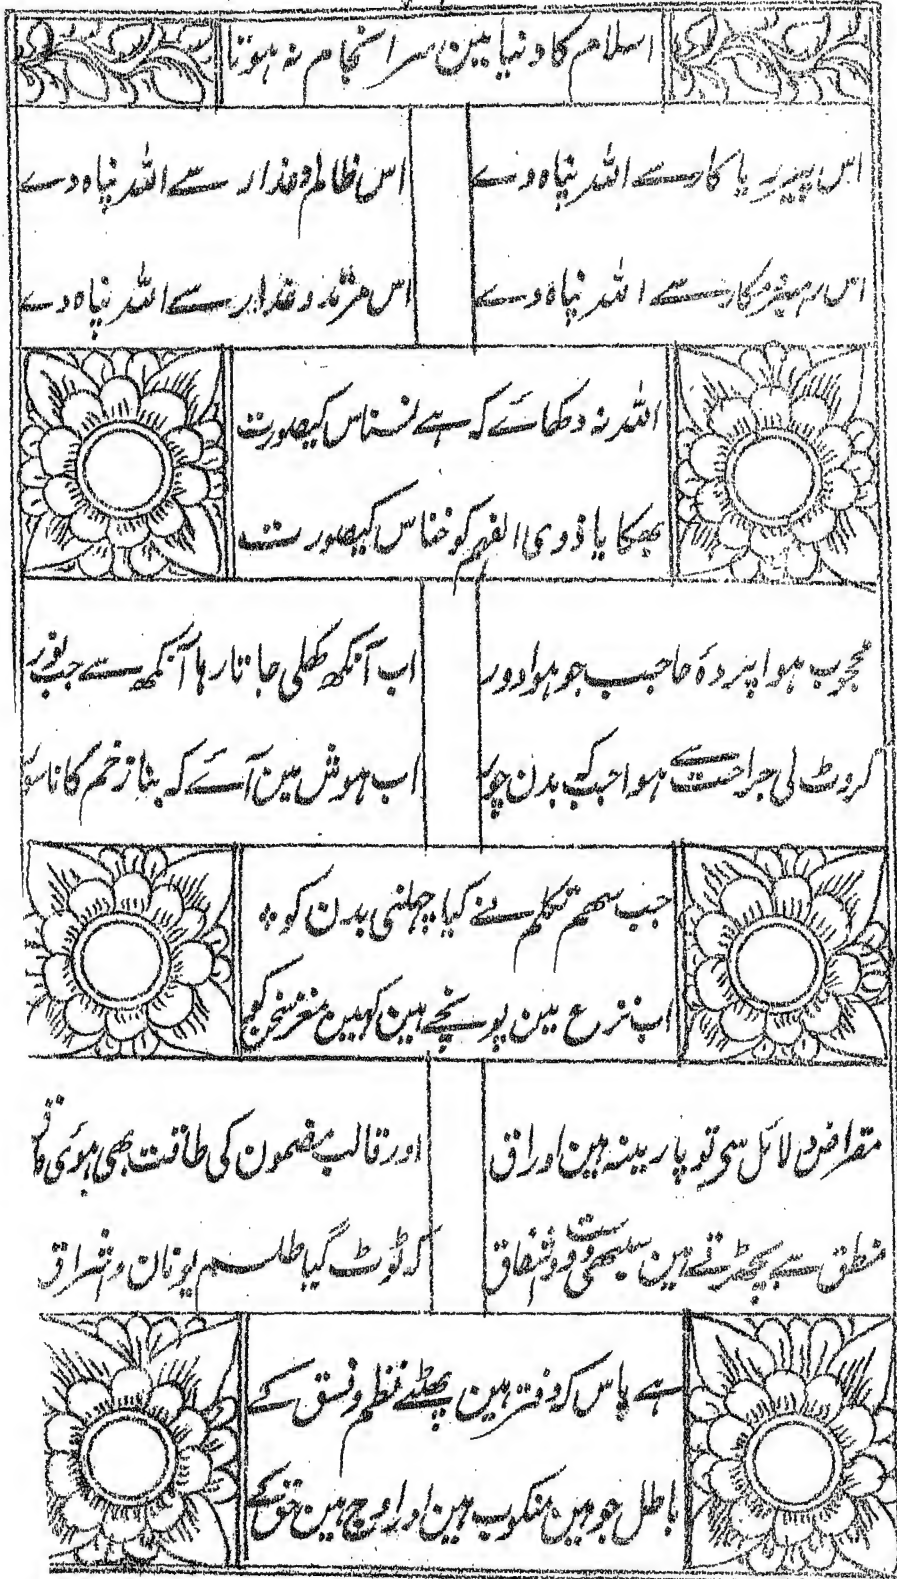 اسلام کا دنیا مین سر انجام نہ ہوتا
اس پیر ریا کار سے اللہ پناہ دے
اس ظالم و غدار سے اللہ پناہ دے
اس رہبر مکار سے اللہ پناہ دے
اس مرتد و غدار سے اللہ پناہ دے
اللہ نہ دکھائے کہ ہے نسناس کیصورت
بھکایا ذوی الفہم کو خناس کیصورت
محجوب ہوا پردۂ حاجب جو ہوا دور
اب آنکھ کھلی جاتا رہا آنکھ سے جب نور
کروٹ لی جراحت سے ہوا جب کہ بدن چور
اب ہوش مین آئے کہ بنا زخم کا ناسور
جب سہم تکلم نے کیا چھلنی بدن کو
اب نزع مین پونچے ہین کہین مغز سخن کو
مقراض دلائل سی تو پارینہ ہین اوراق
اور قالب مضمون کی طاقت بھی ہوئی
منطق سے بچھڑتے ہین
کہ ٹوٹ گیا طلسم یونان و اشراق
ہے پاس کہ دفتر ہین پھٹے نظم و نسق کے
باطل جو ہین منکوب ہین اور اوج ہین حق کے